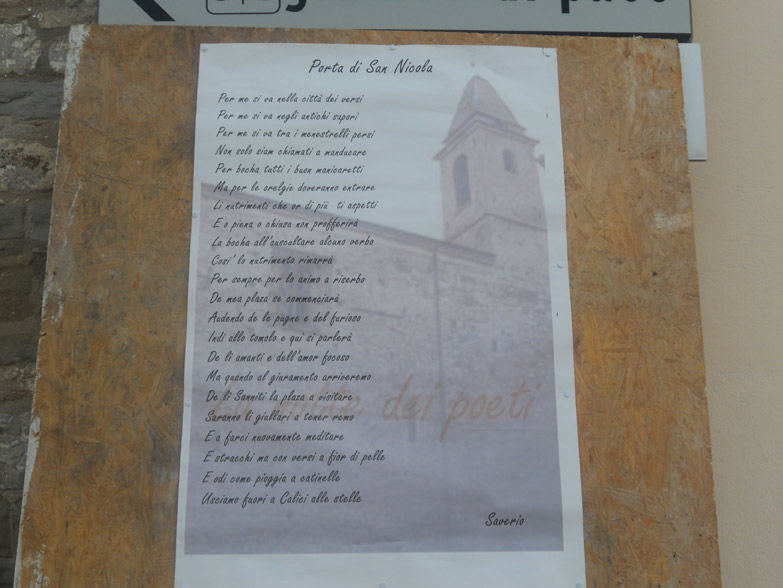 Porta di San Nicola
Per me si va nella città dei versi
Per me si va negli antichi sapori
Per me si va tra i menestrelli persi
Non solo siam chiamati a manducare
Per bocha tutti i buon manicaretti
Ma per le orelgie doveranno entrare
Li nutrimenti che or di più ti aspetti
E o piena o chiusa non profferirà
La bocha all'auscultare alcuno verbo
Cosi' lo nutrimento rimarrà
Per sempre per lo animo a riserbo
De mea plaza se commenciarà
Audendo de le pugne e del furioso
Indi allo tomolo e qui si parlerà
De li amanti e dell'amor focoso
Ma quando al giuramento arriveremo
De li Sanniti la plaza a visitare
Saranno li giullari a tener remo
E a farci nuovamente meditare
E stracchi ma con versi a fior di pelle
E odi come pioggia a catinelle
Usciamo fuori a Calici alle stelle
dei poeti
Saverio